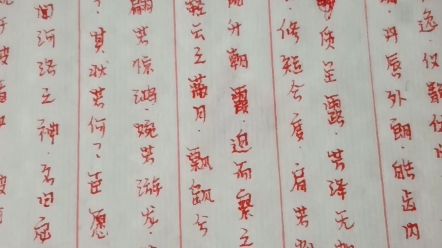 逸.仪静体
丹唇外朗.皓齿内
质呈露.芳泽无
修短合度.肩若
升朝霞.迫而察之
云之蔽月.飘飖兮
翩若惊鸿.婉若游龙
其状若何?臣愿
闻河洛之神.名曰宓